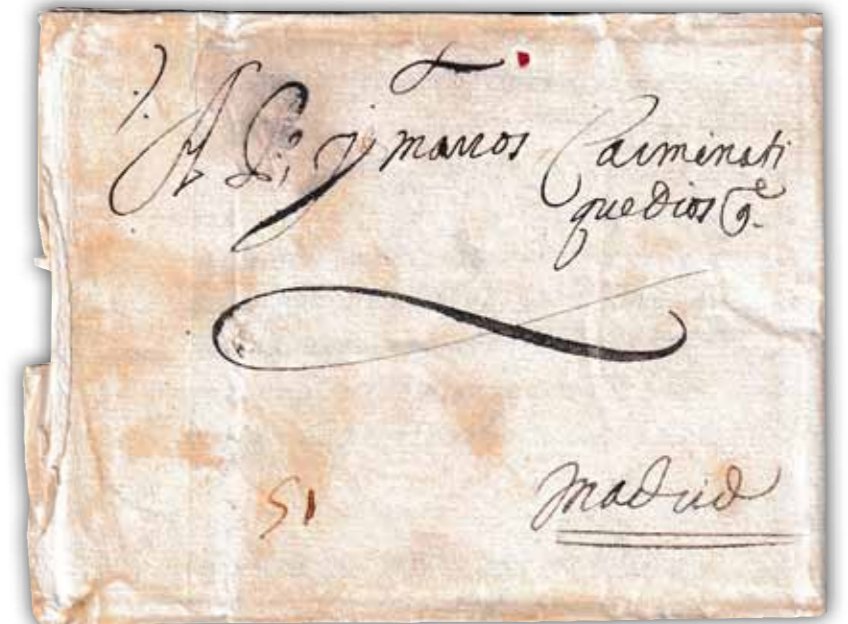 A marcos Carminati
que Dios g.e
51
Madrid